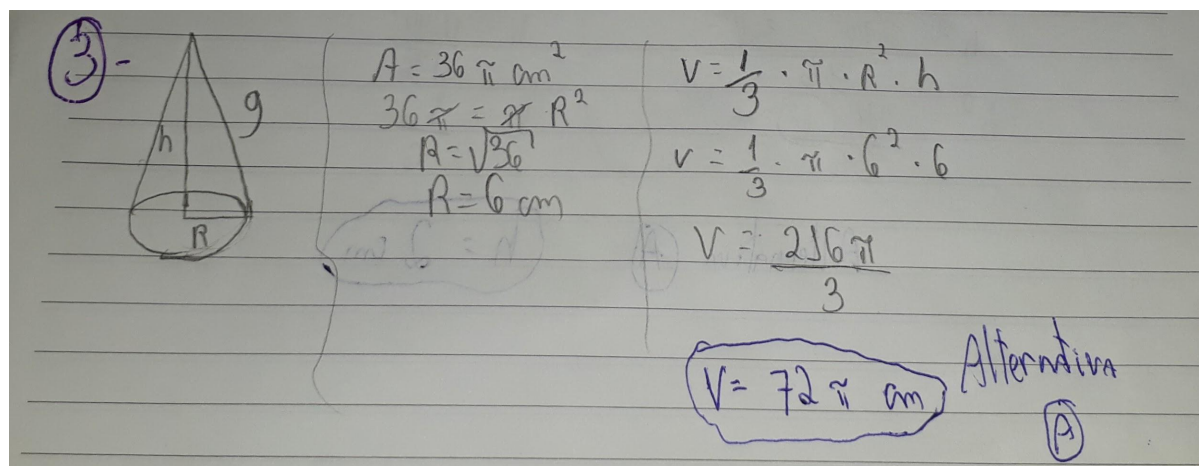 3-
h
g
R
A = 36 π cm²
36 π = π R²
R = √36
R = 6 cm
V = 1/3 · π · R² · h
V = 1/3 · π · 6² · 6
V = 216 π / 3
V = 72 π cm
Alternativa
A